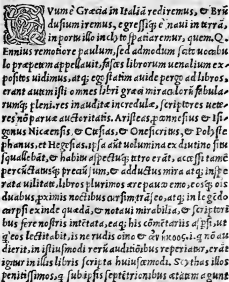 CVum è Græcia in Italiã rediremus, & Brũ
dusium iremus, egreßiq; è naui in terrã,
in portu illo inclyto spatiaremur, quem. Q.
Ennius remotiore paulum, sed admodum scito uocabu
lo præpetem appellauit, fasces librorum uenalium ex-
positos uidimus, atq; ego statim auide pergo ad libros,
erant autem isti omnes libri græci miraculorũ fabula-
rumq; pleni. res inauditæ incredulæ, scriptores uete-
res nõ paruæ auctoritatis. Aristeas, & Isi-
gonus Nicaensis, & Ctesias, & Onesicritus, & Polyste
phanus, et Hegesias, ipsa aũt uolumina ex diutino situ
squallebãt, & habitu aspectuq; tetro erãt, acceßi tamẽ
percũctatusq; preciũ sum, & adductus mira atq; insper
rata uilitate, libros plurimos ære pauco emo, eosq; oẽs
duabus, proximis noctibus cursim trãseo, atq; in legẽdo
carpsi exinde quædã, & notaui mirabilia, & scriptorib
bus fere nostris intẽtata, eaq; his cõmẽtarijs aspsi, ut
q̃ eos lectitabit, is ne rudis oĩno & ἀνήκοος, nõ au
dierit, in istiusmodi rerũ auditiõibus reperiatur, erãt
igitur in illis libris scripta huiuscẽmodi. Scythas illos
penitißimos, q̃ sub ipsis septẽtrionibus ætatem agunt